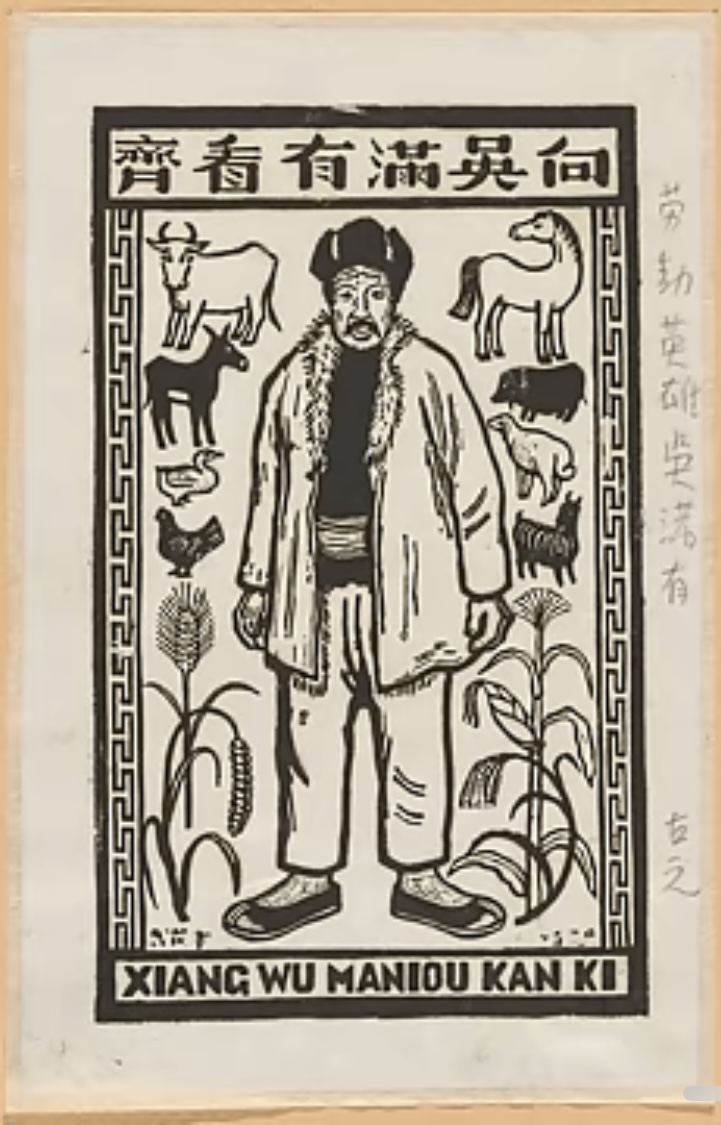 向吳滿有看齊
XIANG WU MANIOU KAN KI
劳動英雄吳满有
古元